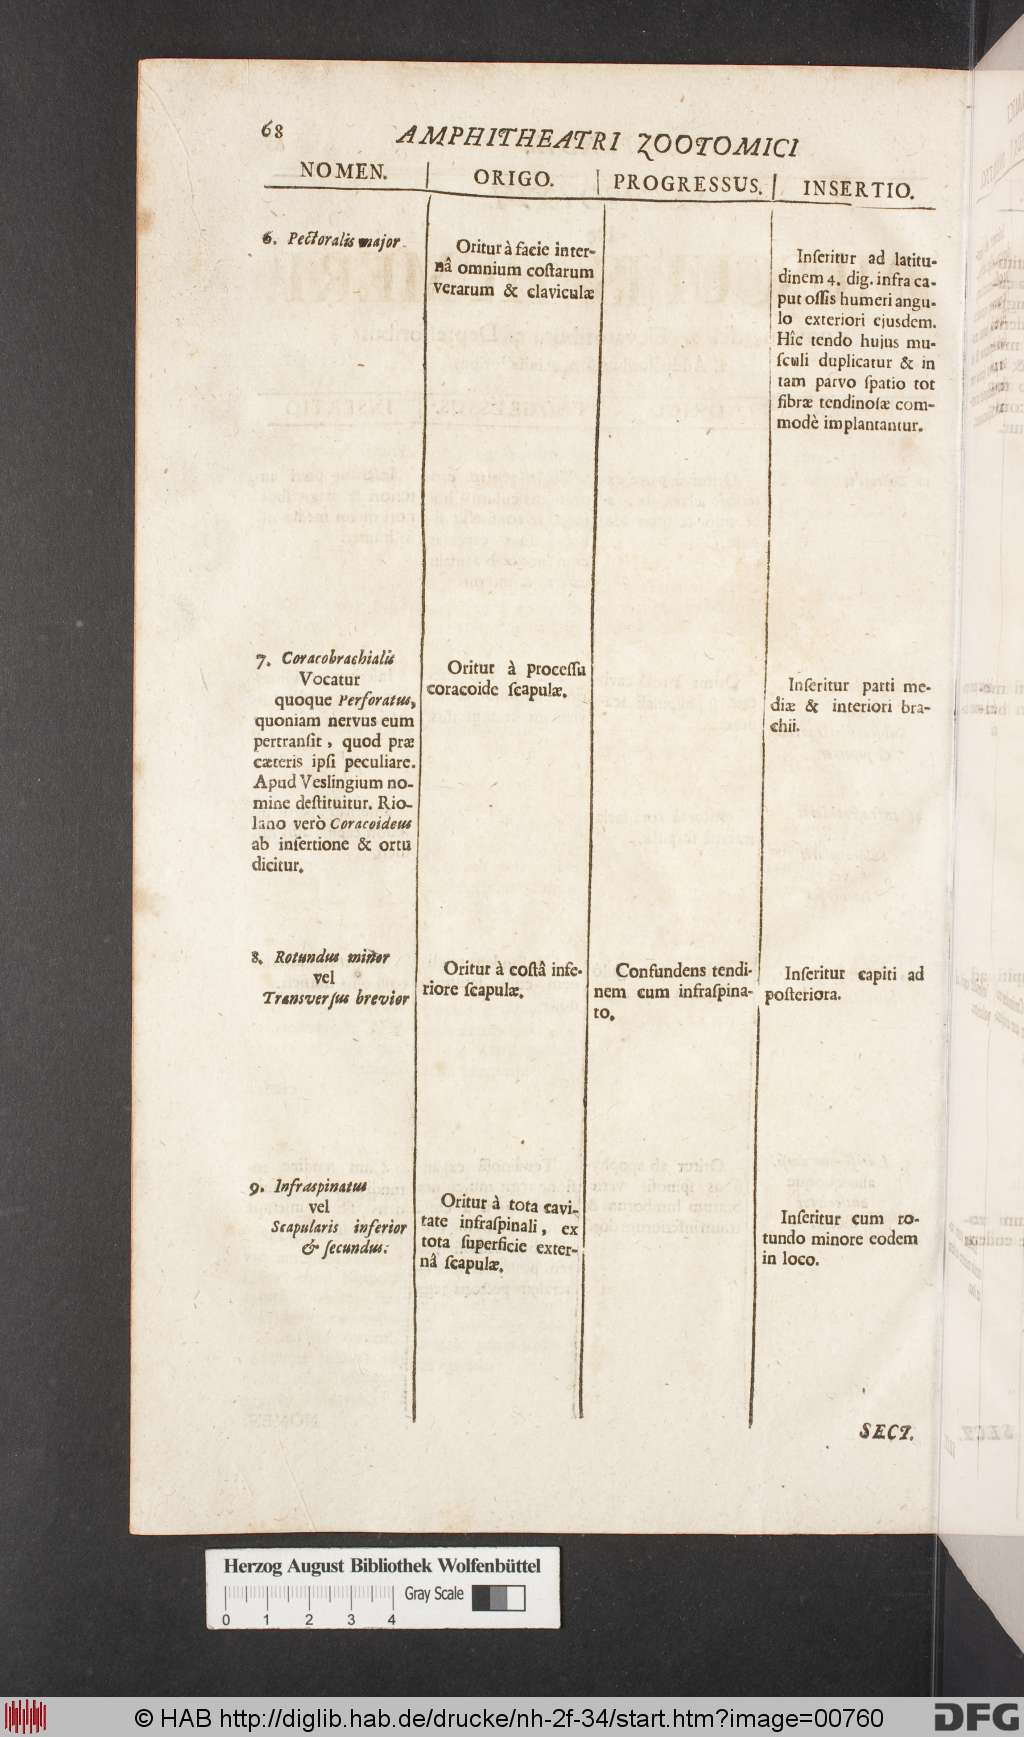 68
AMPHITHEATRI ZOOTOMICI
NOMEN. | ORIGO. | PROGRESSUS. | INSERTIO.
6. Pectoralis major
Oritur à facie inter-
nâ omnium costarum
verarum & claviculæ
Inſeritur ad latitu-
dinem 4. dig. infra ca-
put oſſis humeri angu-
lo exteriori ejusdem.
Hîc tendo hujus mu-
ſculi duplicatur & in
tam parvo ſpatio tot
fibræ tendinoſæ com-
modè implantantur.
7. Coracobrachialis
Vocatur
quoque Perforatus,
quoniam nervus eum
pertranſit, quod præ
cæteris ipſi peculiare.
Apud Veslingium no-
mine deſtituitur. Rio-
lano verò Coracoideus
ab inſertione & ortu
dicitur.
Oritur à proceſſu
coracoide ſcapulæ.
Inſeritur parti me-
diæ & interiori bra-
chii.
8. Rotundus minor
vel
Transverſus brevior
Oritur à coſtâ infe-
riore ſcapulæ.
Confundens tendi-
nem cum infraſpina-
to.
Inſeritur capiti ad
poſteriora.
9. Infraspinatus
vel
Scapularis inferior
& ſecundus.
Oritur à tota cavi-
tate infraſpinali, ex
tota ſuperficie exter-
nâ ſcapulæ.
Inſeritur cum ro-
tundo minore eodem
in loco.
SECT.
Herzog August Bibliothek Wolfenbüttel
Gray Scale
0 1 2 3 4
© HAB http://diglib.hab.de/drucke/nh-2f-34/start.htm?image=00760
DFG